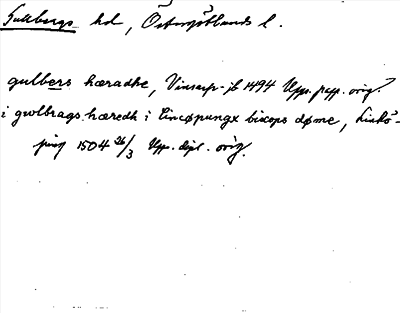 Gullbergs hd, Östergötlands l.
gulbers hæradhe, Vinsarp-jb 1494 Upps. papp. orig.
i gwlbrags hæredh i lincøpungx biscops døme, Linkö-
ping 1504 26/3 Upps. dipl. orig.